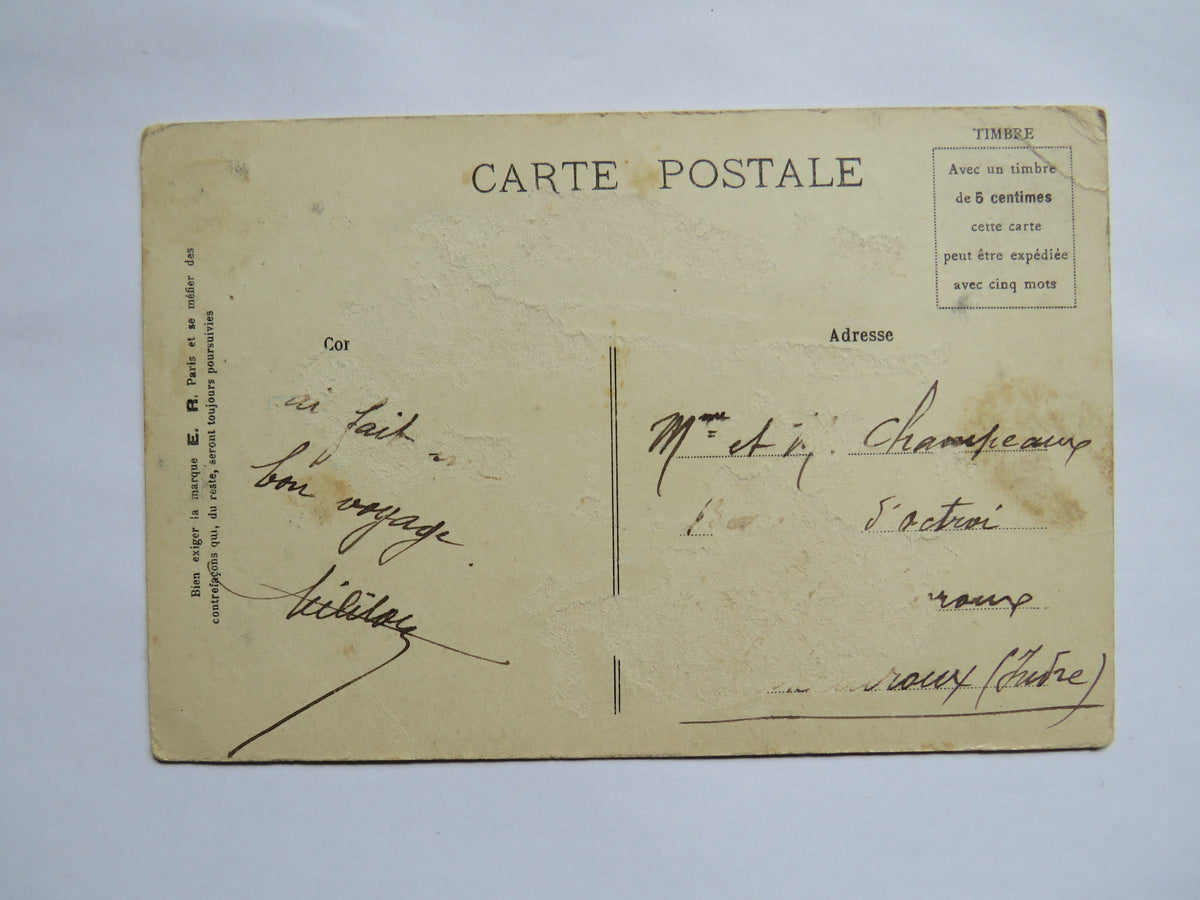 CARTE POSTALE
TIMBRE
Avec un timbre
de 5 centimes
cette carte
peut être expédiée
avec cinq mots
Bien exiger la marque E. R. Paris et se méfier des
contrefaçons qui, du reste, seront toujours poursuivies
Cor
ai fait
bon voyage.
Adresse
Mme et M. Champeaux
d'octroi
roux
roux (Indre)